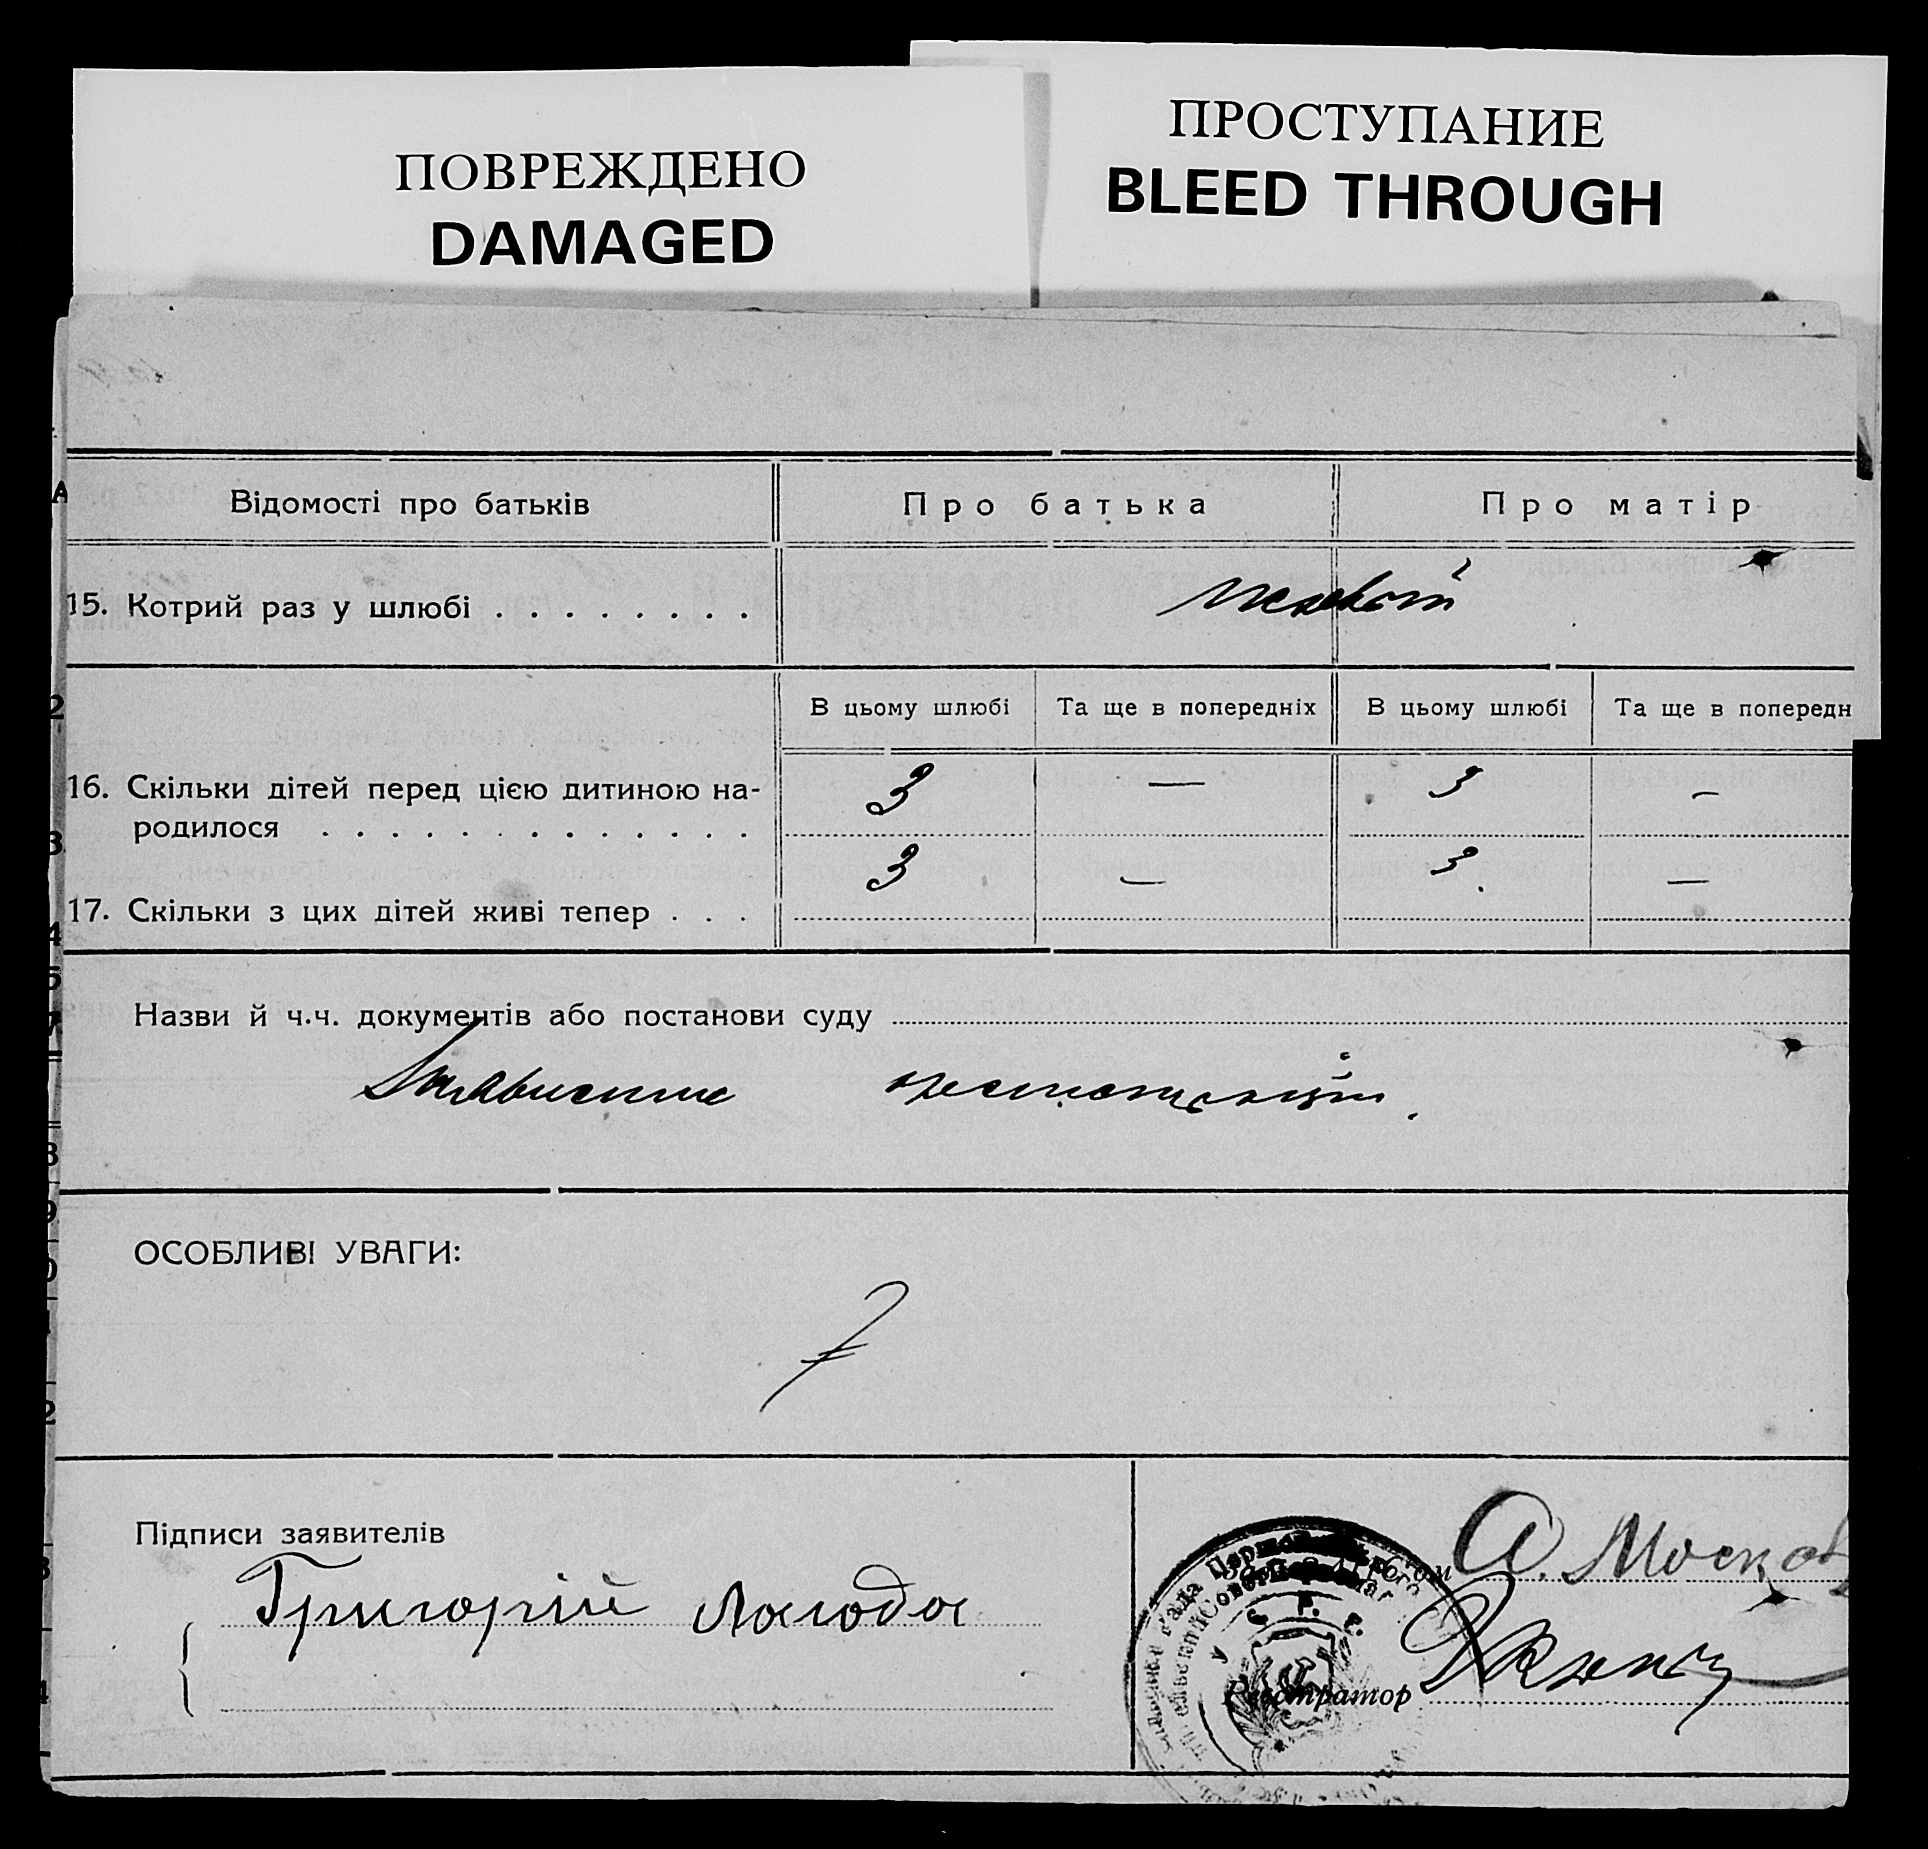 ПОВРЕЖДЕНО
DAMAGED
ПРОСТУПАНИЕ
BLEED THROUGH
Відомості про батьків
Про батька
Про матір
15. Котрий раз у шлюбі . . . . . . . .
В цьому шлюбі
Та ще в попередніх
В цьому шлюбі
Та ще в попередн
16. Скільки дітей перед цією дитиною на-
родилося . . . . . . . . . . . . .
3 — 3 —
17. Скільки з цих дітей живі тепер . . .
3 — 3 —
Назви й ч.ч. документів або постанови суду
ОСОБЛИВІ УВАГИ:
Підписи заявителів
Григорій Лагода
А. Моск
У. С. Р. Р.
Реєстратор